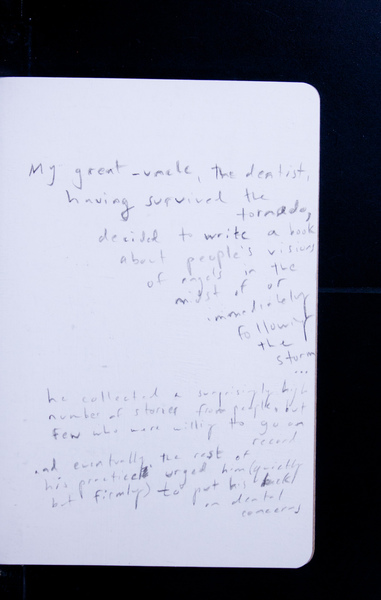 My great-uncle, the dentist,
having survived the
tornado,
decided to write a book
about people's visions
of angels in the
midst of or
immediately
following
the
storm
...
he collected a surprisingly high
number of stories from people, but
few who were willing to go on
record
and eventually the rest of
his practice urged him (quietly
but firmly) to put his
on dental
concerns